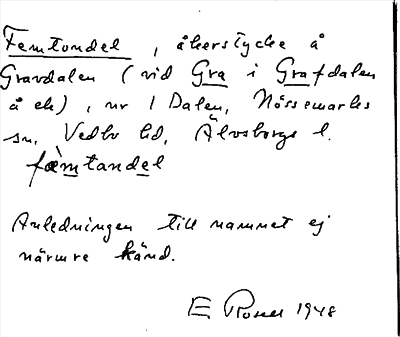 Femtondel, åkerstycke å
Gravdalen (vid Gra i Grafdalen
å ek), nr 1 Dalen, Nössemarks
sn, Vedbo hd, Älvsborgs l.
fæ̀mtandel
Anledningen till namnet ej
närmre känd.
E 1948